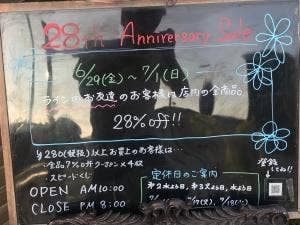 28th Anniversary Sale
6/29(金)〜7/1(日)
ラインのお友達のお客様は店内の全商品
28%off!!
¥280(税抜)以上お買上のお客様は…
・全品7%offクーポン×4枚
・スピードくじ
OPEN AM10:00
CLOSE PM 8:00
登録してね!!
定休日のご案内
第2水よう日、第3火よう日、水よう日